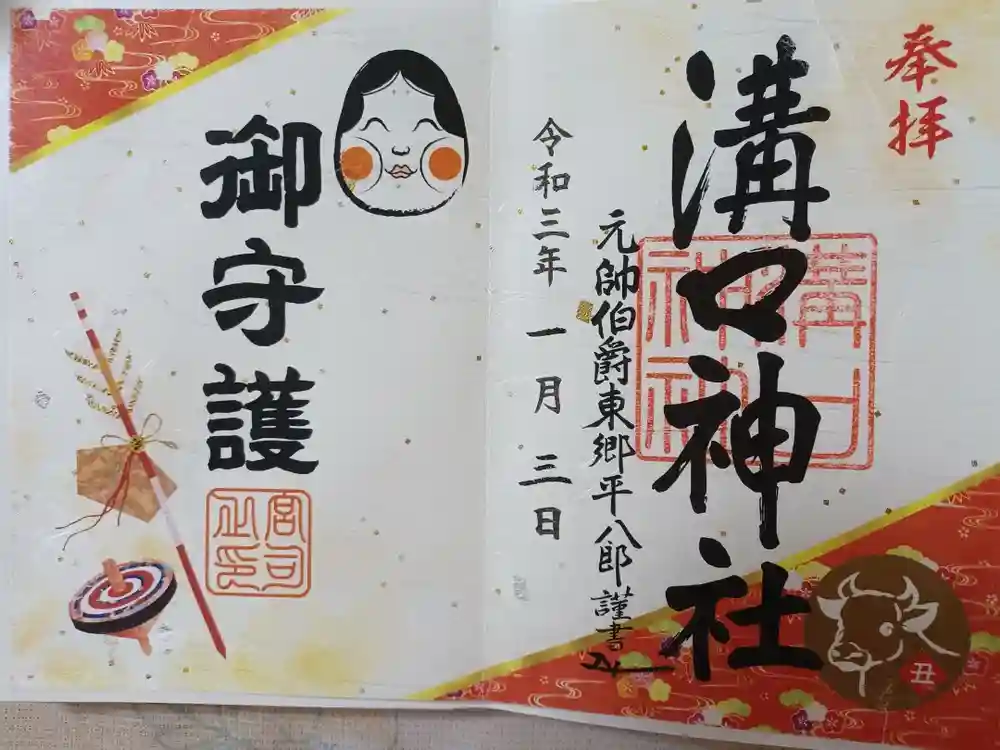 奉拝
溝口神社
溝口神社
元帥伯爵東郷平八郎謹書
令和三年一月三日
丑
御守護
宮司之印